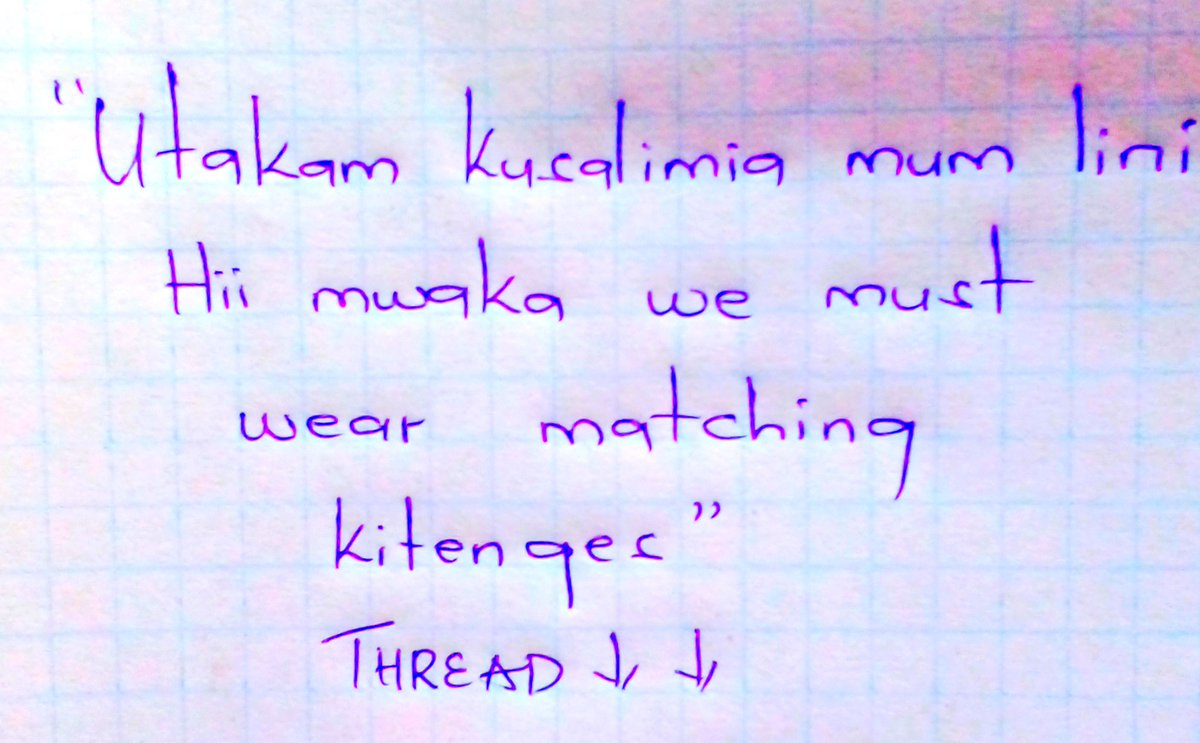 "Utakam kusalimia mum lini
Hii mwaka we must
wear matching
kitenges"
THREAD ↓ ↓